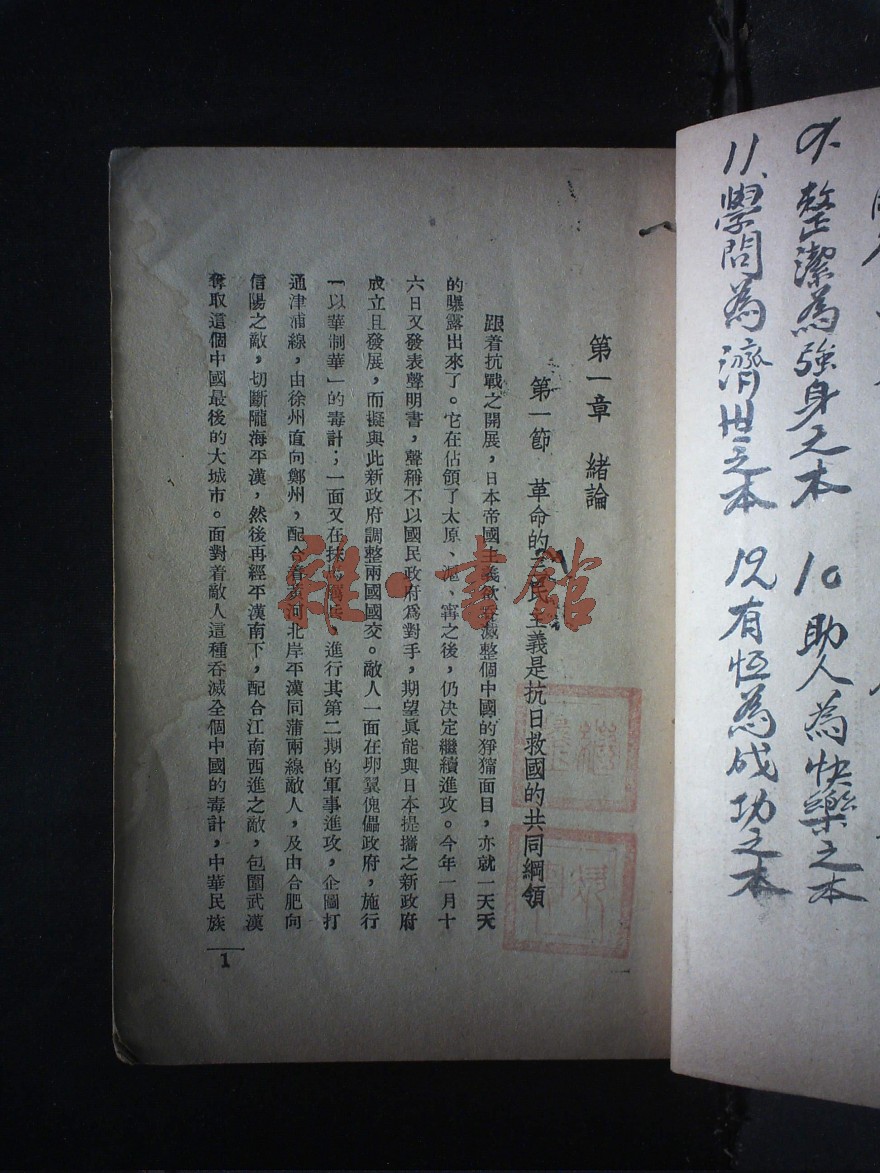 9. 整潔為強身之本 10 助人為快樂之本
11、學問為濟世之本 12 有恆為成功之本
第一章 緒論
第一節 革命的三民主義是抗日救國的共同綱領
跟着抗戰之開展，日本帝國主義欲吞滅整個中國的猙獰面目，亦就一天天
的曝露出來了。它在佔領了太原、滬、寗之後，仍決定繼續進攻。今年一月十
六日又發表聲明書，聲稱不以國民政府爲對手，期望眞能與日本提攜之新政府
成立且發展，而擬與此新政府調整兩國國交。敵人一面在卵翼傀儡政府，施行
「以華制華」的毒計；一面又在抹馬厲兵、進行其第二期的軍事進攻，企圖打
通津浦線，由徐州直向鄭州，配合着黃河北岸平漢同蒲兩線敵人，及由合肥向
信陽之敵，切斷隴海平漢，然後再經平漢南下，配合江南西進之敵，包圍武漢
奪取這個中國最後的大城市。面對着敵人這種吞滅全個中國的毒計，中華民族
1
雜·書館